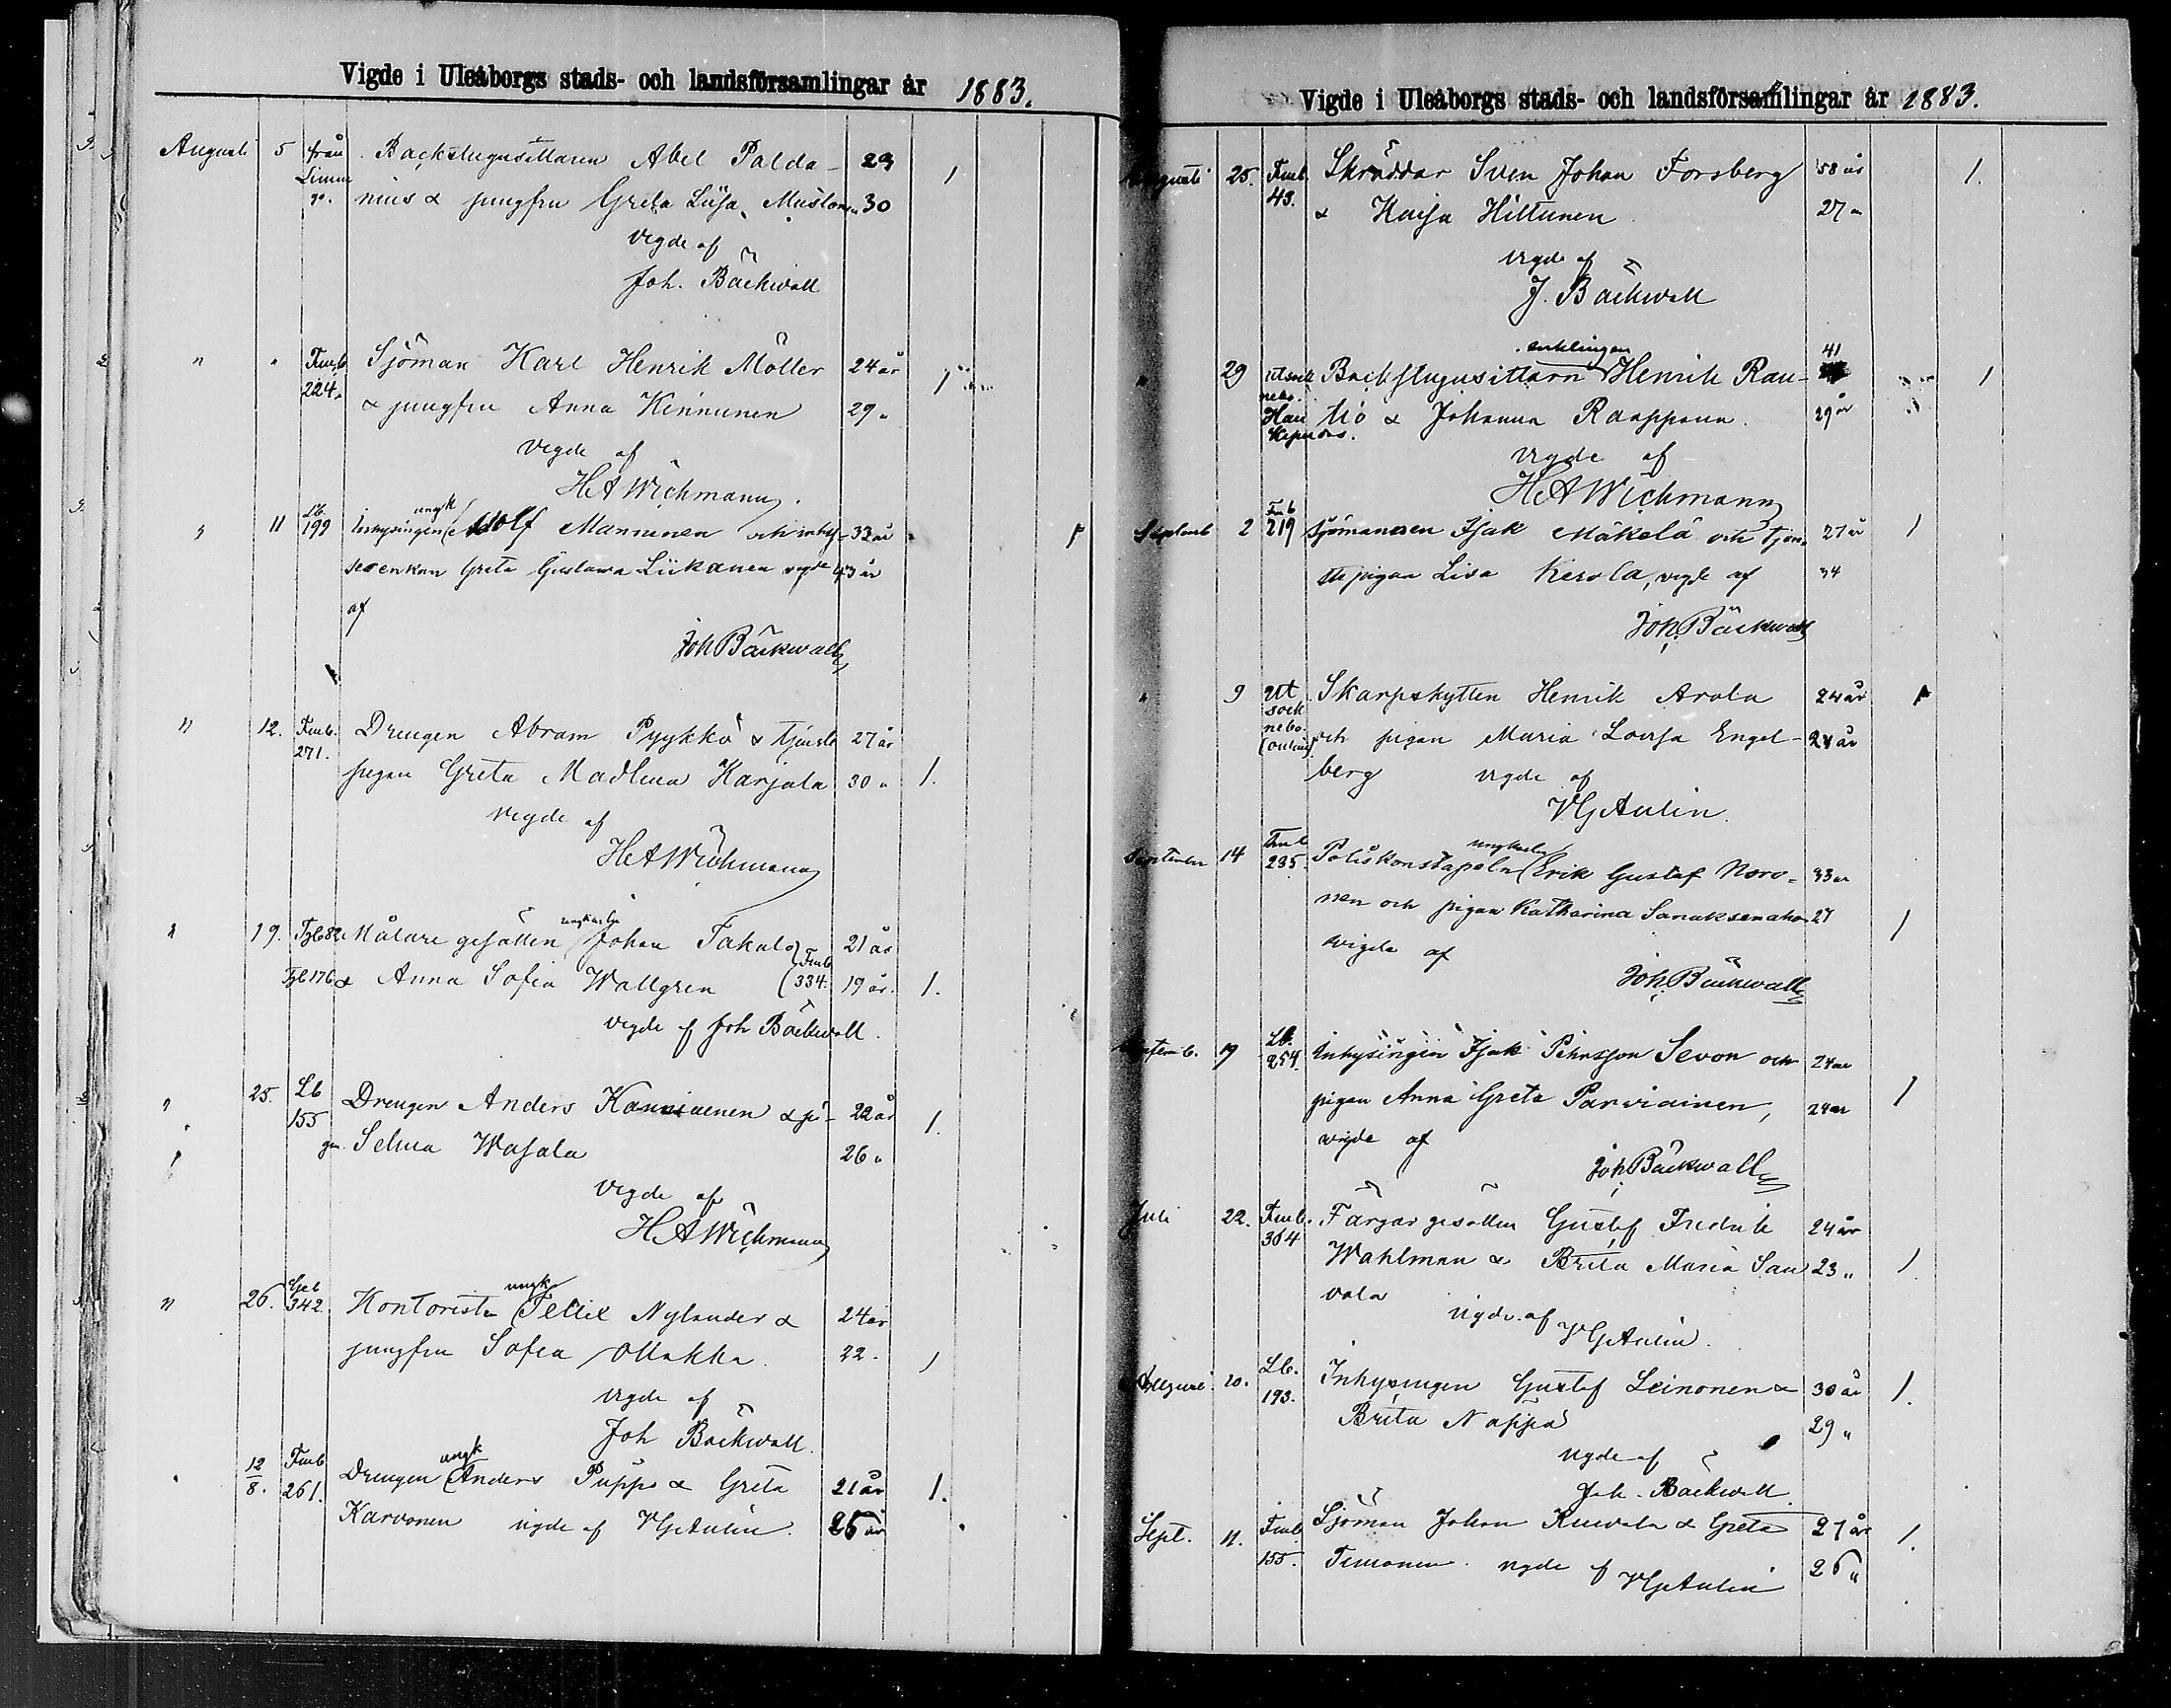 Vigde i Uleåborgs stads- och landsförsamlingar år 1883.
Augusti 5 från Limingo. Backstugusittaren Abel Palda- 29 1
nius & jungfru Greta Lisa Muston 30
vigde af
Joh. Bäckwall
" " Fmb. 224. Sjöman Karl Henrik Möller 24 år 1
& jungfru Anna Kinnunen 29 "
vigde af
HAWichmann.
" 11 Lb. 199 Inhysingen (ungk Adolf Manninen och inhy- 33 år 1
seenkan Greta Gustava Liikanen vigde 43 år
af
Joh Bäckwall
" 12. Fmb. 271. Drengen Abram Pyykkö & tjenste 27 år
pigan Greta Madlena Karjala 30 " 1.
vigde af
HAWichmann
" 19. Målare gesällen (ungkarlen Johan Takalo 21 år
& Anna Sofia Wallgren (Fmb 334. 19 år. 1.
vigde af Joh Bäckwall.
" 25. Lb 155 Drengen Anders & pi- 22 år 1.
gan Selma Wasala 26 "
vigde af
HAWichmann
" 26. 342. Kontoristen (ungk Felix Nylander & 24 år
jungfru Sofia Makka. 22. 1
vigde af
Joh Bäckwall.
" 12/8. Fmb 261. Drengen (ungk Anders Puppo & Greta 21 år 1.
Karvonen vigde af VGAulin. 25 år
Vigde i Uleåborgs stads- och landsförsamlingar år 1883.
Augusti 25. Fmb. 43. Skräddar Sven Johan Forsberg 58 år 1.
& Kaisa Hiltunen 27 "
vigde af
J. Bäckwall
" 29 utsocknebo. Backstugusittarn (enklingen Henrik Rau- 41 1
tio & Johanna Raappana. 29 år
vigde af
HAWichmann
Septemb 2 Fmb 219 Sjömannen Isak Mäkelä och tjen- 27 år 1
stepigan Lisa Kerola, vigde af 34
Joh. Bäckwall
" 9 utsocknebo. (Oulais). Skarpskytten Henrik Arola 24 år 1
och pigan Maria Lovisa Engel- 24 år
berg vigde af
VGAulin.
September 14 Fmb 235. Poliskonstapeln (ungkarlen Erik Gustaf Noro- 33 år
nen och pigan Katharina Sanaksenaho 27 1
vigde af
Joh. Bäckwall
Septemb. 19 Lb. 254. Inhysingen Isak Pehrsson Sevon och 24 år
pigan Anna Greta Parviainen, 24 år 1
vigde af
Joh. Bäckwall
Juli 22. Fmb. 364 Färgar gesällen Gustaf Fredrik 24 år
Wahlman & Brita Maria Sau 23 " 1.
vola vigde af
VGAulin.
Augusti 20. Lb. 193. Inhysingen Gustaf Leinonen & 30 år 1.
Brita Nappa 29 "
vigde af
Joh. Bäckwall
Sept. 11. Fmb 155. Sjöman Johan Kuivala & Greta 27 år 1.
Timonen. vigde af VGAulin 26 "